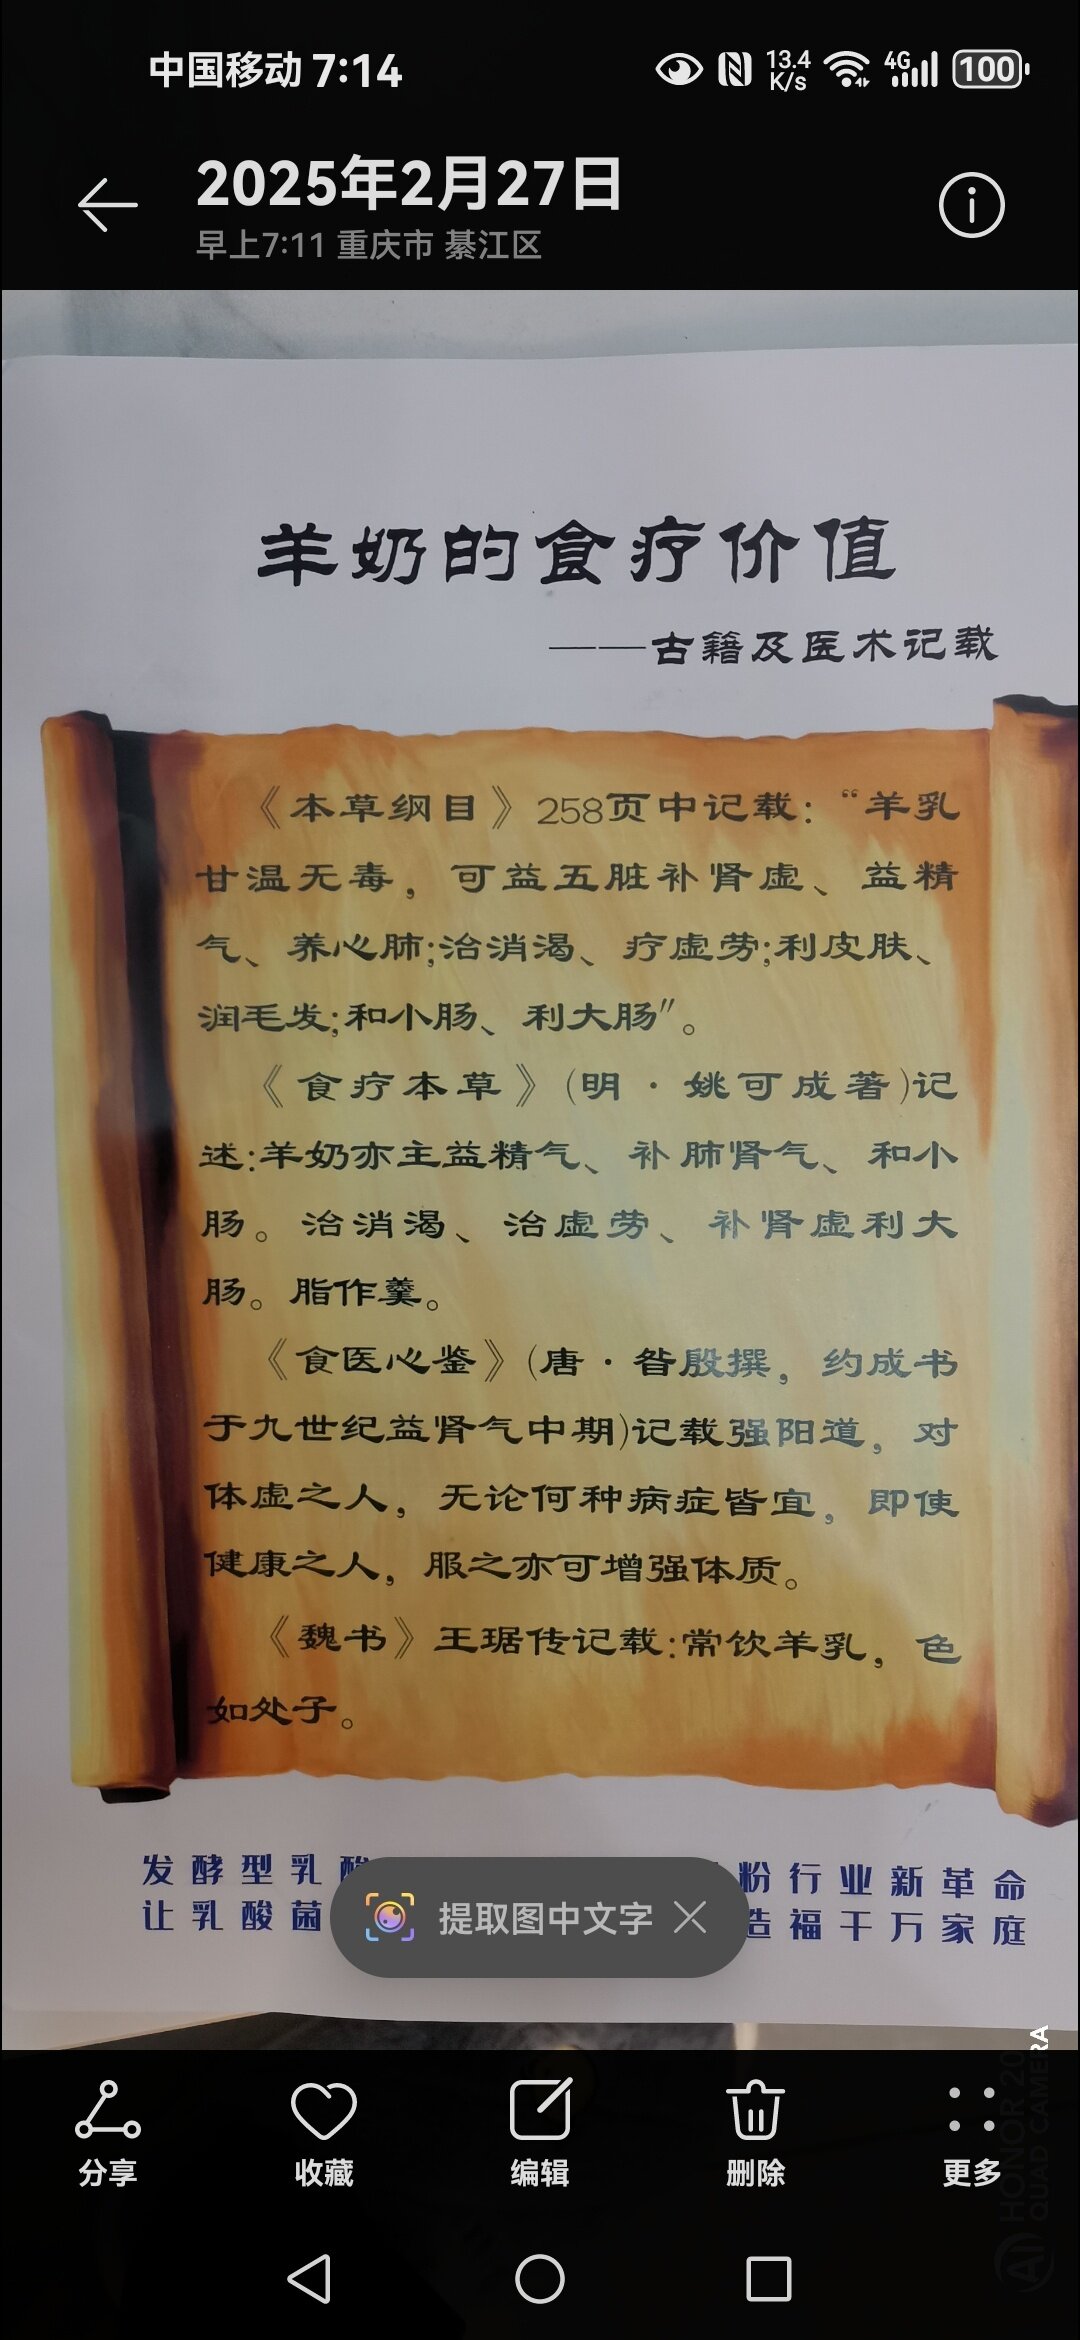 中国移动 7:14
13.4 K/s
4G
100
2025年2月27日
早上7:11 重庆市 綦江区
羊奶的食疗价值
——古籍及医术记载
《本草纲目》258页中记载：“羊乳
甘温无毒，可益五脏补肾虚、益精
气、养心肺;治消渴、疗虚劳;利皮肤、
润毛发;和小肠、利大肠”。
《食疗本草》(明·姚可成著)记
述:羊奶亦主益精气、补肺肾气、和小
肠。治消渴、治虚劳、补肾虚利大
肠。脂作羹。
《食医心鉴》(唐·昝殷撰，约成书
于九世纪益肾气中期)记载强阳道，对
体虚之人，无论何种病症皆宜，即使
健康之人，服之亦可增强体质。
《魏书》王琚传记载:常饮羊乳，色
如处子。
发酵型乳酸 粉行业新革命
让乳酸菌 造福千万家庭
提取图中文字
分享 收藏 编辑 删除 更多
HONOR 20
QUAD CAMERA
AI